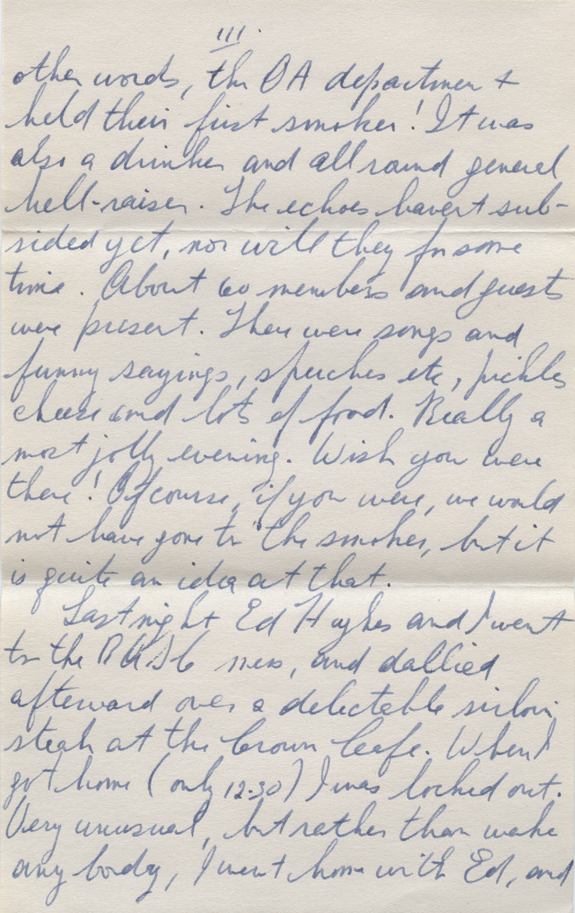 III.
other words, the OA department
held their first smoker! It was
also a drinker and all round general
hell-raiser. The echoes havent sub-
sided yet, nor will they for some
time. About 60 members and guests
were present. There were songs and
funny sayings, speeches etc, pickles
cheese and lots of food. Really a
most jolly evening. Wish you were
there! Ofcourse, if you were, we would
not have gone to the smoker, but it
is quite an idea at that.
Last night Ed Hughes and I went
to the mess, and dallied
afterward over a delectable sirloin
steak at the Crown Cafe. When I
got home (only 12:30) I was locked out.
Very unusual, but rather than wake
any body, I went home with Ed, and